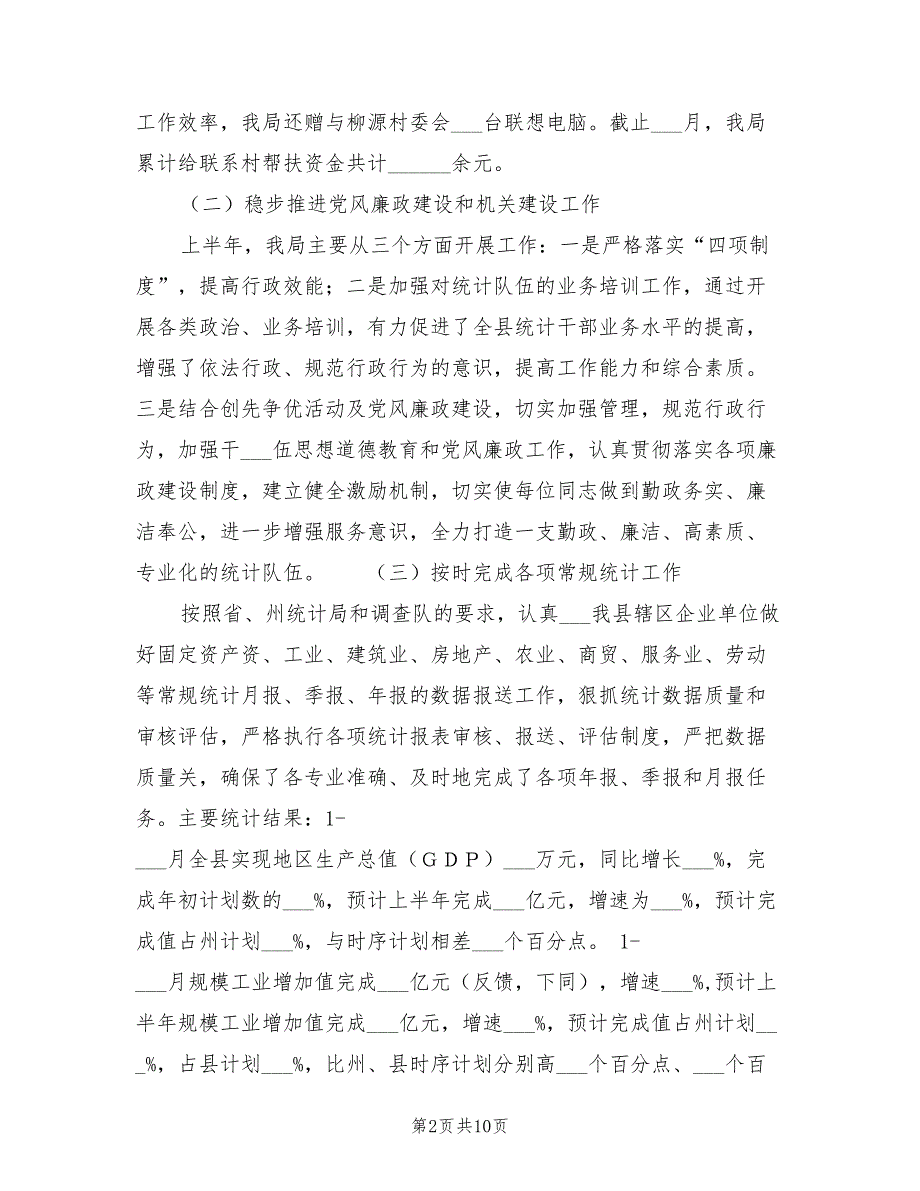 工作效率，我局还赠与柳源村委会___台联想电脑。截止___月，我局
累计给联系村帮扶资金共计______余元。
（二）稳步推进党风廉政建设和机关建设工作
上半年，我局主要从三个方面开展工作：一是严格落实“四项制
度”，提高行政效能；二是加强对统计队伍的业务培训工作，通过开
展各类政治、业务培训，有力促进了全县统计干部业务水平的提高，
增强了依法行政、规范行政行为的意识，提高工作能力和综合素质。
三是结合创先争优活动及党风廉政建设，切实加强管理，规范行政行
为，加强干___伍思想道德教育和党风廉政工作，认真贯彻落实各项廉
政建设制度，建立健全激励机制，切实使每位同志做到勤政务实、廉
洁奉公，进一步增强服务意识，全力打造一支勤政、廉洁、高素质、
专业化的统计队伍。 （三）按时完成各项常规统计工作
按照省、州统计局和调查队的要求，认真___我县辖区企业单位做
好固定资产资、工业、建筑业、房地产、农业、商贸、服务业、劳动
等常规统计月报、季报、年报的数据报送工作，狠抓统计数据质量和
审核评估，严格执行各项统计报表审核、报送、评估制度，严把数据
质量关，确保了各专业准确、及时地完成了各项年报、季报和月报任
务。主要统计结果：1-
___月全县实现地区生产总值（ＧＤＰ）___万元，同比增长___%，完
成年初计划数的___%，预计上半年完成___亿元，增速为___%，预计完
成值占州计划___%，与时序计划相差___个百分点。 1-
___月规模工业增加值完成___亿元（反馈，下同），增速___%,预计上
半年规模工业增加值完成___亿元，增速___%，预计完成值占州计划__
_%，占县计划___%，比州、县时序计划分别高___个百分点、___个百
第2页共10页